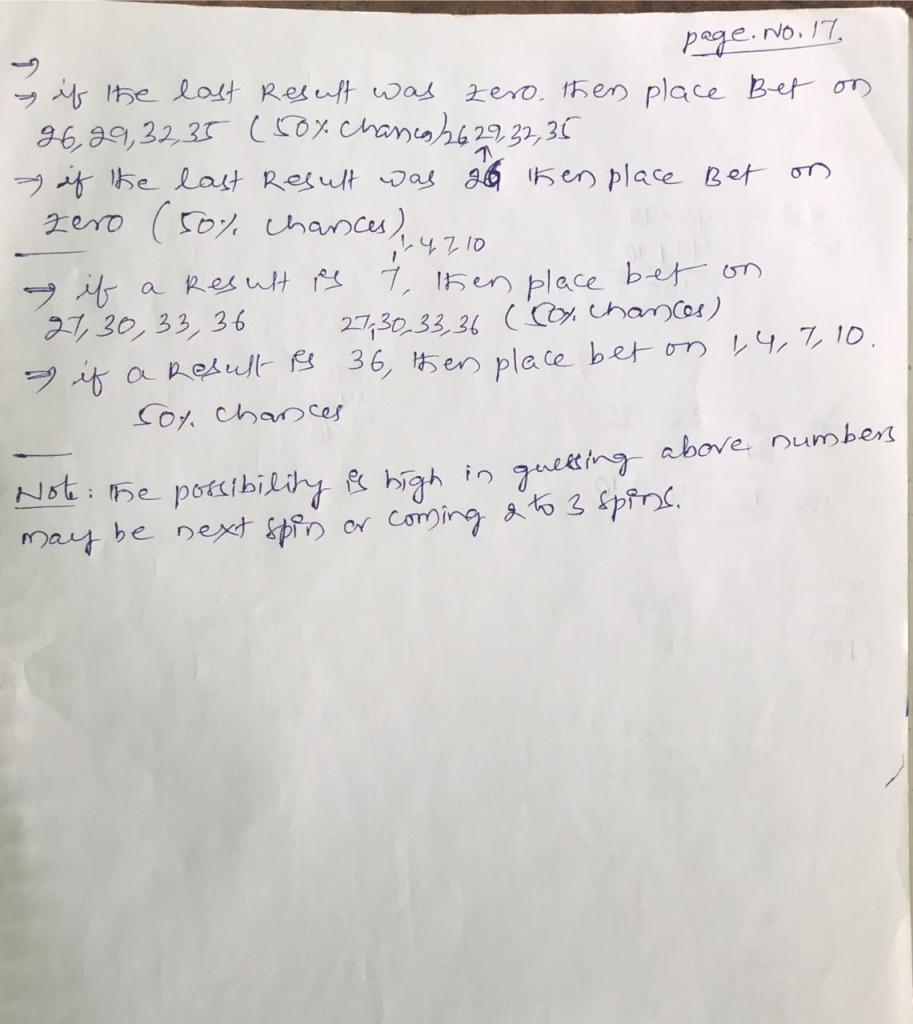 page.No.17.
→
→ if the last Result was zero. then place Bet on
26,29,32,35 (50% chances) 26 29,32,35
↑
→ if the last Result was 26 then place Bet on
zero (50% chances)
1,4 7 10
→ if a Result is 7, then place bet on
27,30,33,36 27,30,33,36 (50% chances)
→ if a Result is 36, then place bet on 1,4,7,10.
50% chances
Note: The possibility is high in guessing above numbers
may be next spin or coming 2 to 3 spins.